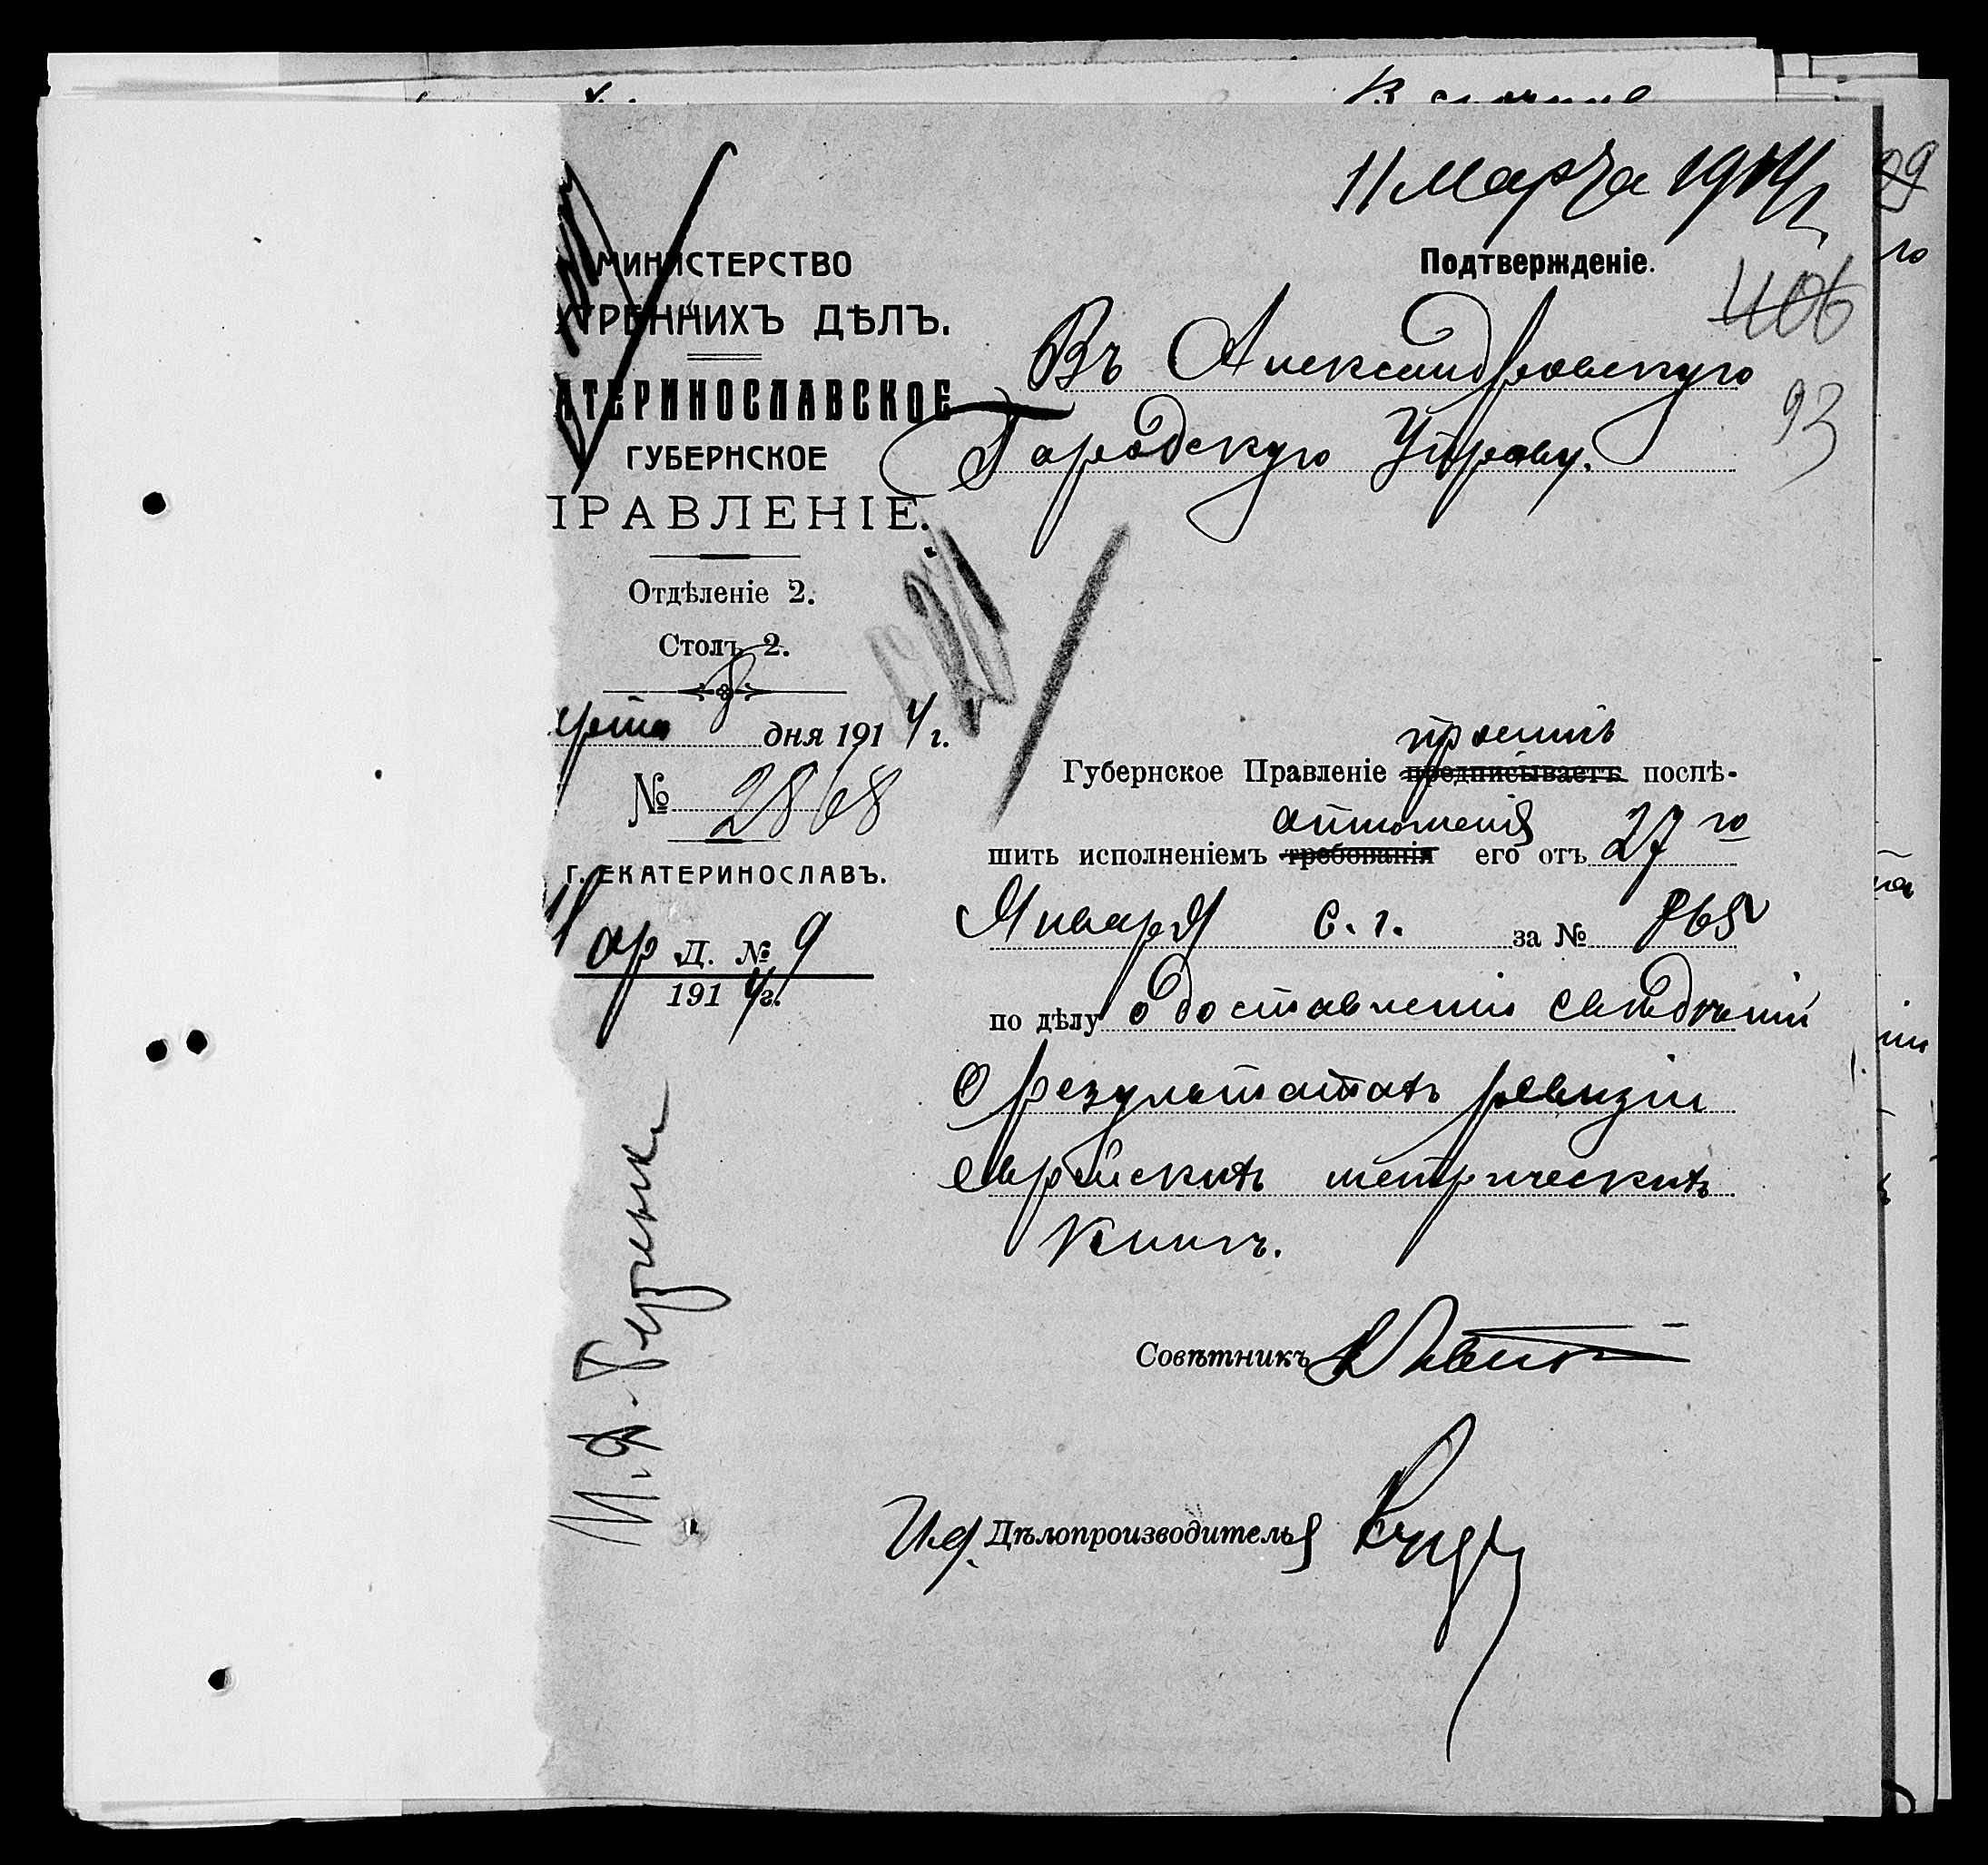 11 Марта 1914 г.
МИНИСТЕРСТВО
ТРЕННИХЪ ДѢЛЪ.
АТЕРИНОСЛАВСКОЕ
ГУБЕРНСКОЕ
ПРАВЛЕНІЕ.
Отдѣленіе 2.
Столъ 2.
арта 8 дня 1914 г.
№ 2868
г. ЕКАТЕРИНОСЛАВЪ.
Д. № 9
1914 г.
Подтвержденіе.
406
93
Въ Александровскую
Городскую Управу.
проситъ
Губернское Правленіе предписываетъ поспѣ-
отношенія
шить исполненіемъ требованія его отъ 27 го
Января с. г. за № 865
по дѣлу о доставленіи свѣдѣній
о результатахъ ревизіи
еврейскихъ метрическихъ
книгъ.
Совѣтникъ
И. д. Дѣлопроизводителя
99
го